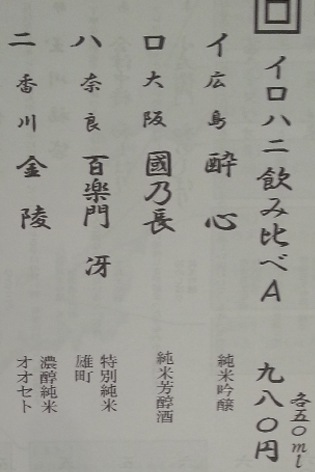 回
イロハニ飲み比べA 九八〇円
各五〇ml
イ 広島 酔心 純米吟醸
ロ 大阪 國乃長 純米芳醇酒
ハ 奈良 百楽門 冴 特別純米
雄町
ニ 香川 金陵 濃醇純米
オオセト